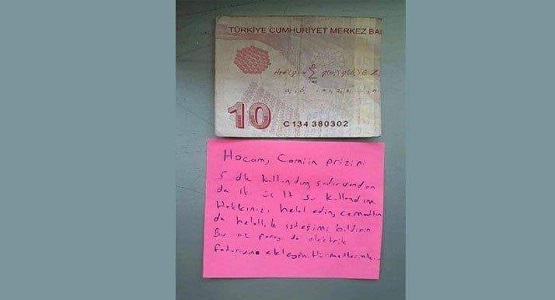 TÜRKİYE CUMHURİYET MERKEZ BA
10
C134 380302
Hocam, Camiin prizini
5 dk kullandım şadırvandan
da iki üç lt su kullandım
Hakkınızı helal edin, cemaatten
da helallik isteğimi bildirin
Bu az parayı da elektrik
faturasına ekleyin. Hürmetlerimle